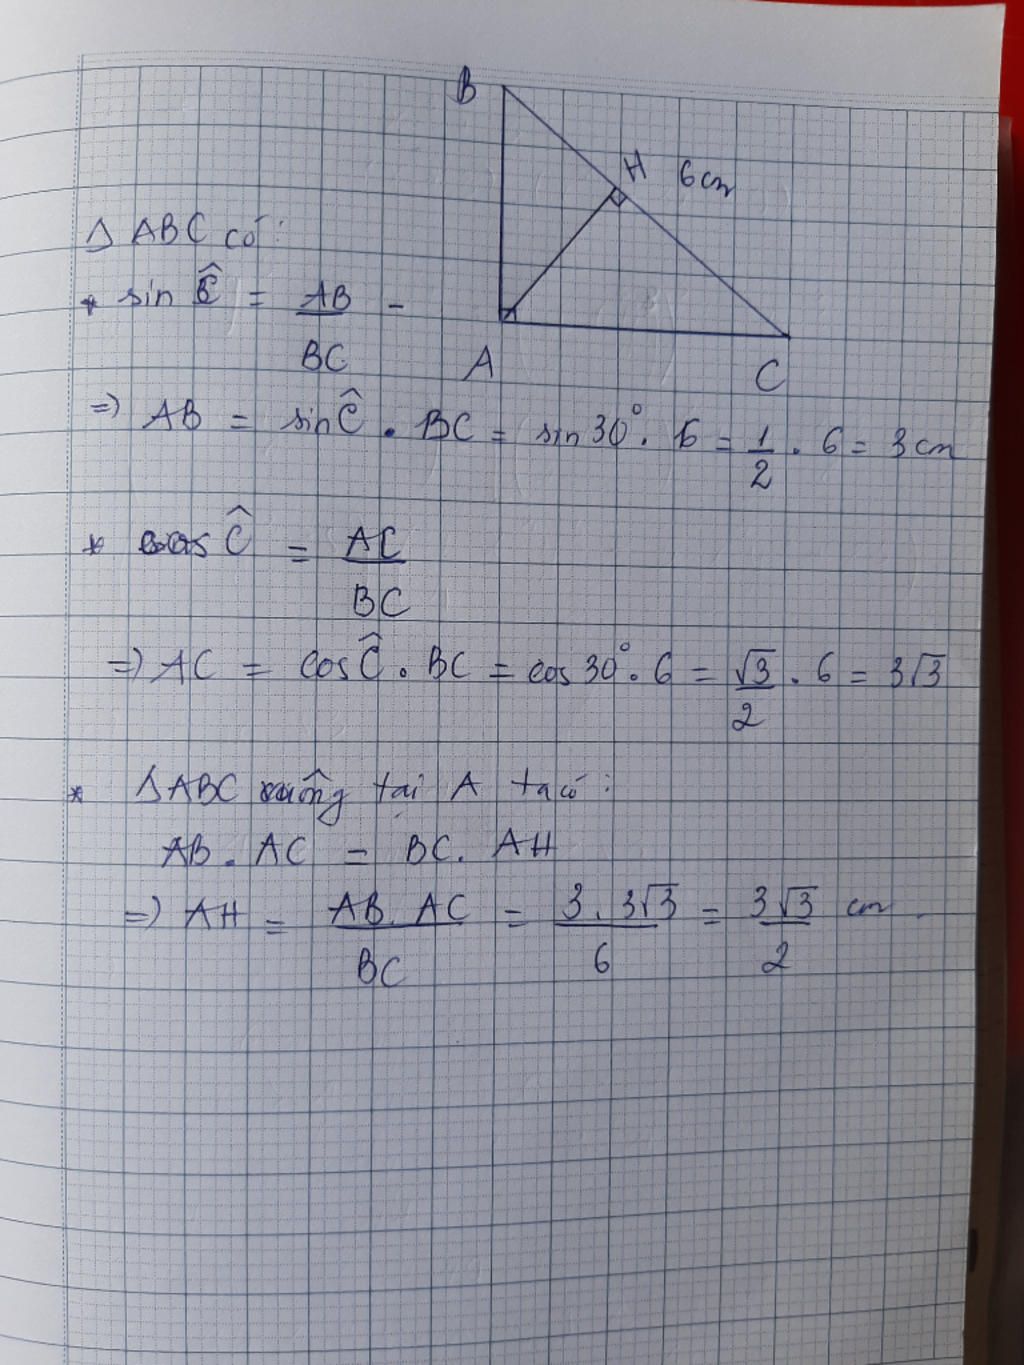 B
H 6cm
Δ ABC có:
* sin Ĉ = AB/BC -
A
C
=) AB = sin Ĉ . BC = sin 30° . 6 = 1/2 . 6 = 3 cm
* cos Ĉ = AC/BC
=) AC = cos Ĉ . BC = cos 30° . 6 = √3/2 . 6 = 3√3
* ΔABC vuông tại A ta có:
AB . AC = BC . AH
=) AH = AB . AC/BC = 3 . 3√3/6 = 3√3/2 cm.